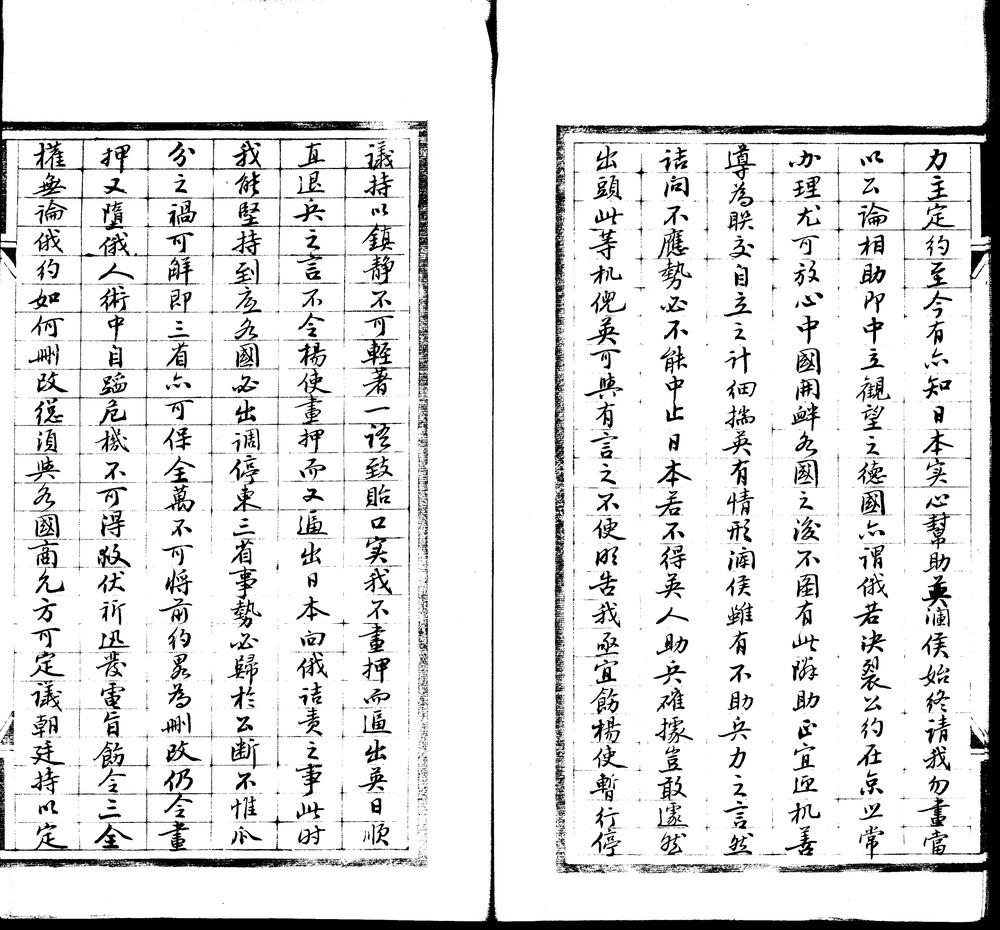 力主定约至今有亦知日本实心幫助英瀾侯始终请我勿畫當
以公論相助即中立觀望之德國亦谓俄若决裂公约在京业常
办理尤可放心中國開衅各國之後不图有此隣助正宜迎机善
導為联交自立之计细揣英有情形瀾侯雖有不助兵力之言然
诘问不應勢必不能中止日本若不得英人助兵確據豈敢遽然
出頭此等机倪英可與有言之不便明告我亟宜飭楊使暫行停
議持以鎮静不可輕著一语致貽口实我不畫押而逼出英日順
直退兵之言不令楊使畫押而又逼出日本向俄诘责之事此时
我能堅持到底各國必出调停東三省事勢必歸於公断不惟瓜
分之禍可解即三省亦可保全萬不可将前约畧為刪改仍令畫
押又墮俄人術中自蹈危機不可得救伏祈迅發電旨飭令三全
權無論俄约如何刪改總須與各國商允方可定議朝廷持以定